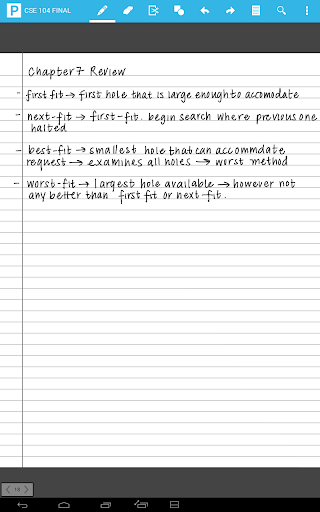 CSE 104 FINAL
Chapter 7 Review
- first fit → first hole that is large enough to accomodate
- next-fit → first-fit. begin search where previous one
halted
- best-fit → smallest hole that can accommdate
request → examines all holes → worst method
- worst-fit → largest hole available → however not
any better than first fit or next fit.
18